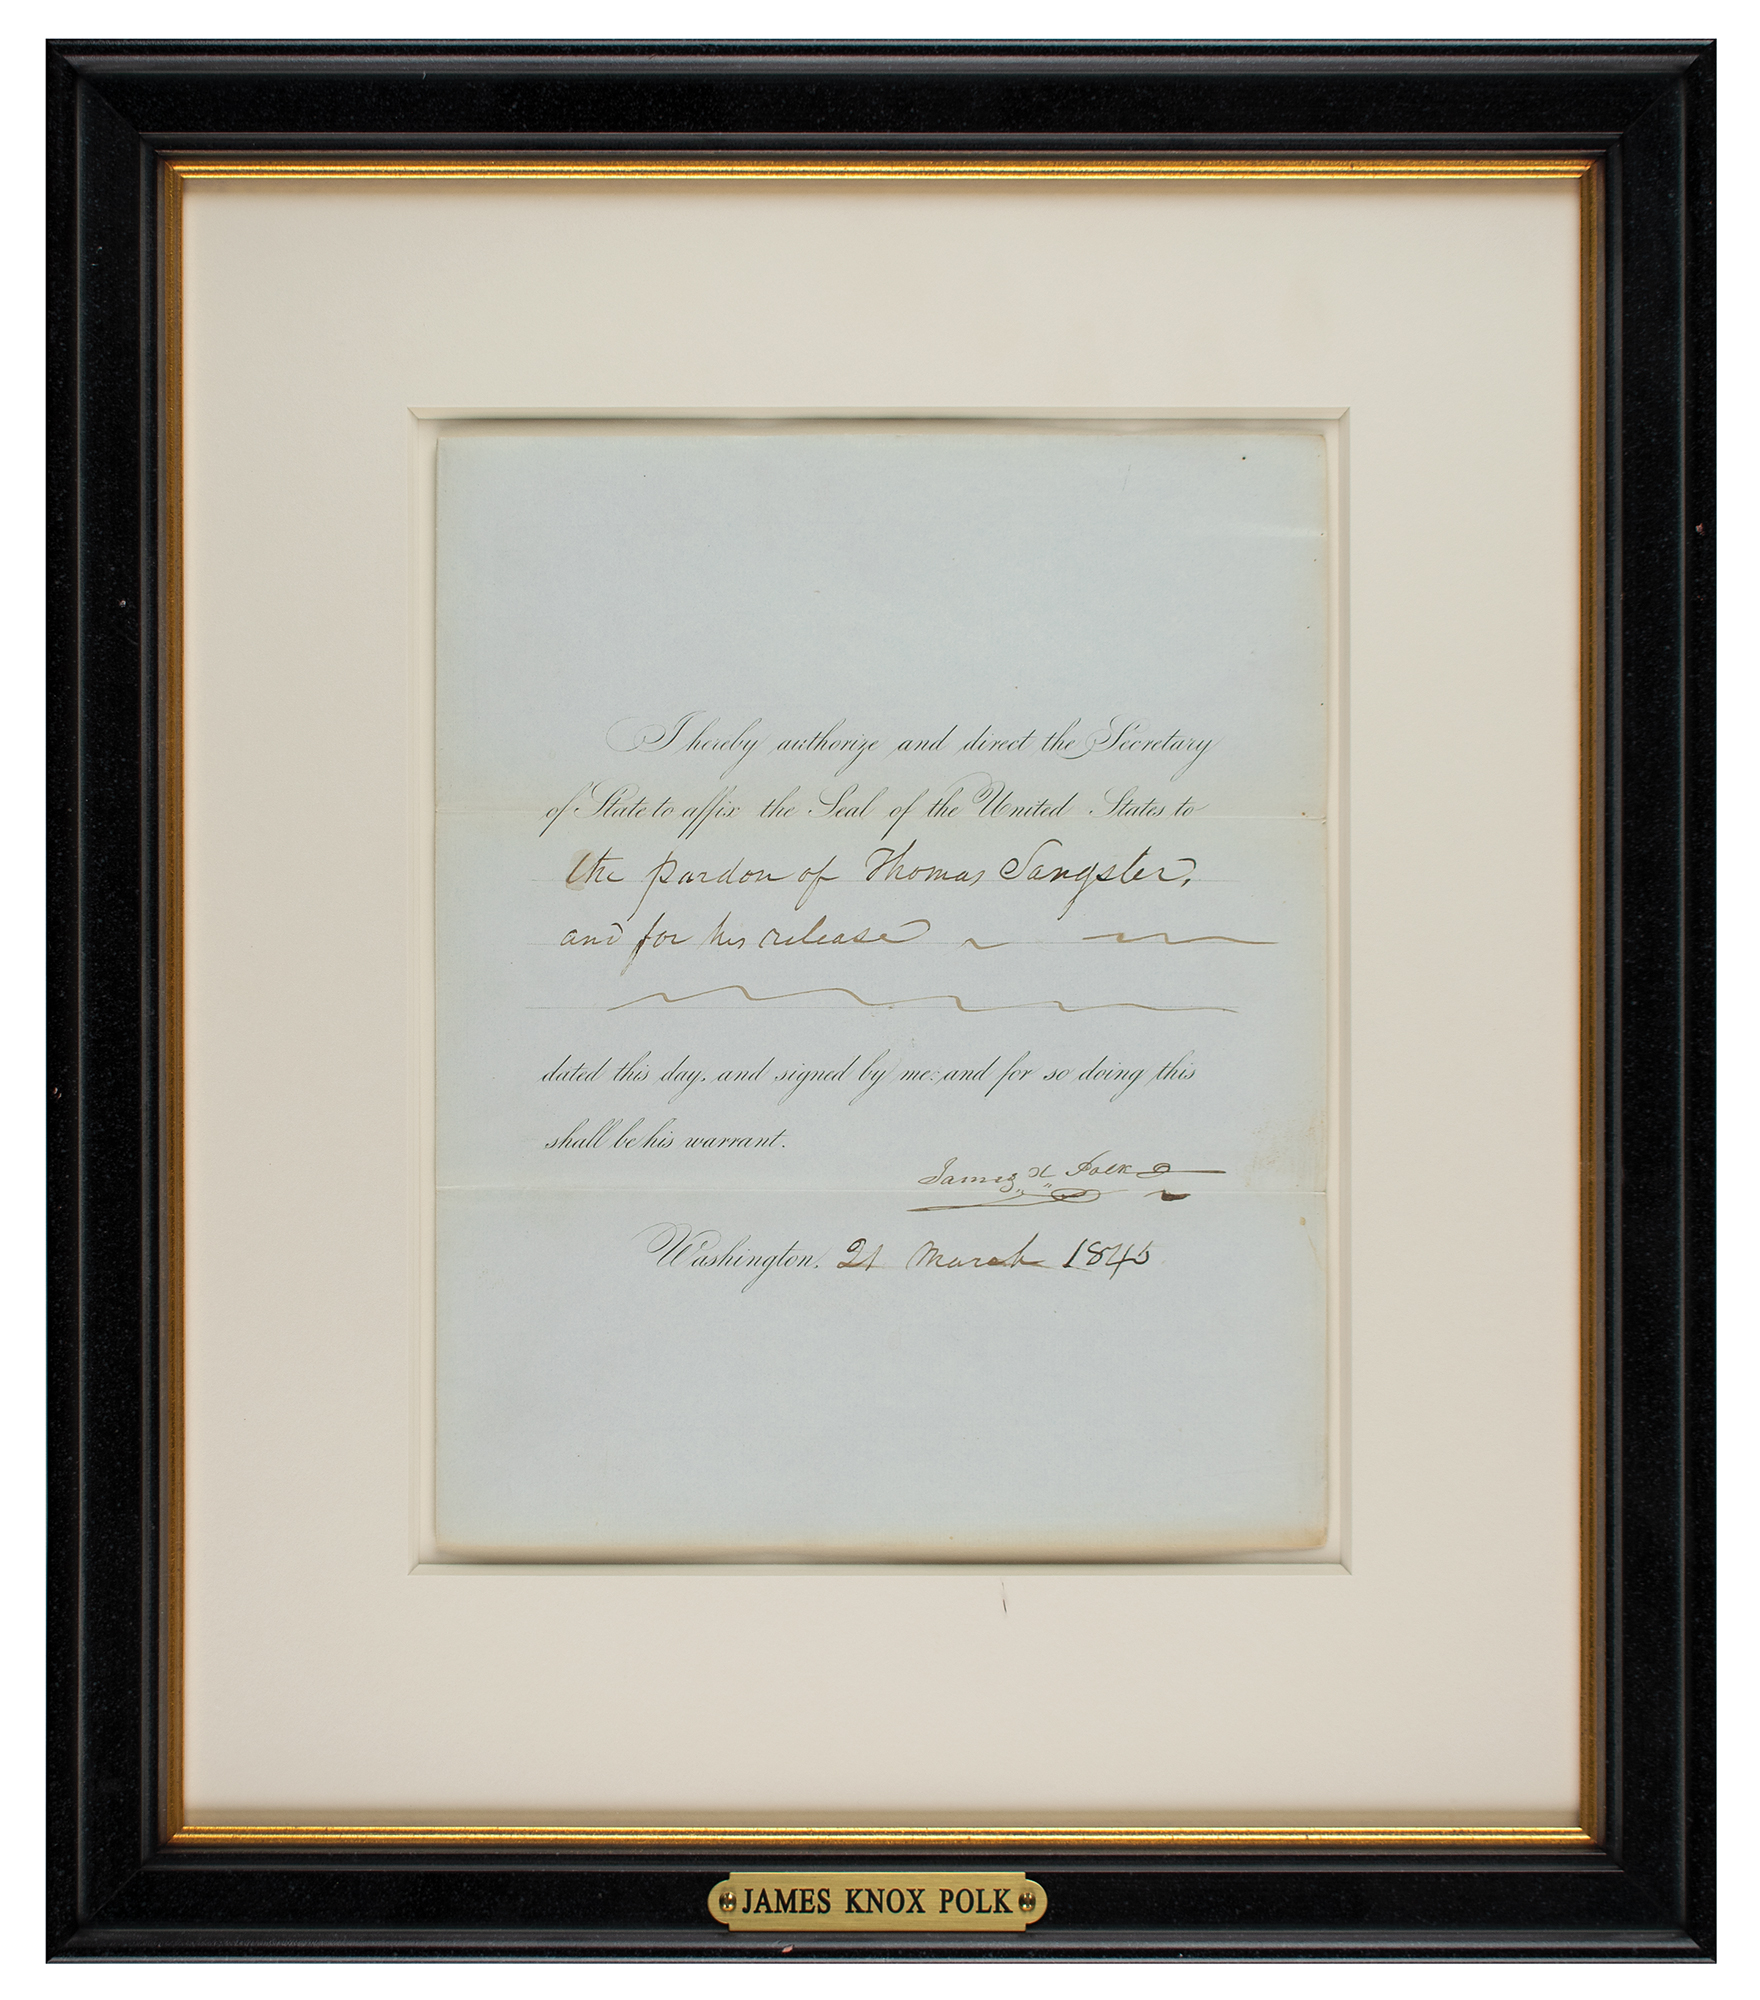 I hereby authorize and direct the Secretary
of State to affix the Seal of the United States to
the pardon of Thomas Sangster,
and for his release
dated this day, and signed by me: and for so doing this
shall be his warrant.
James K. Polk
Washington, 21 March 1845
JAMES KNOX POLK